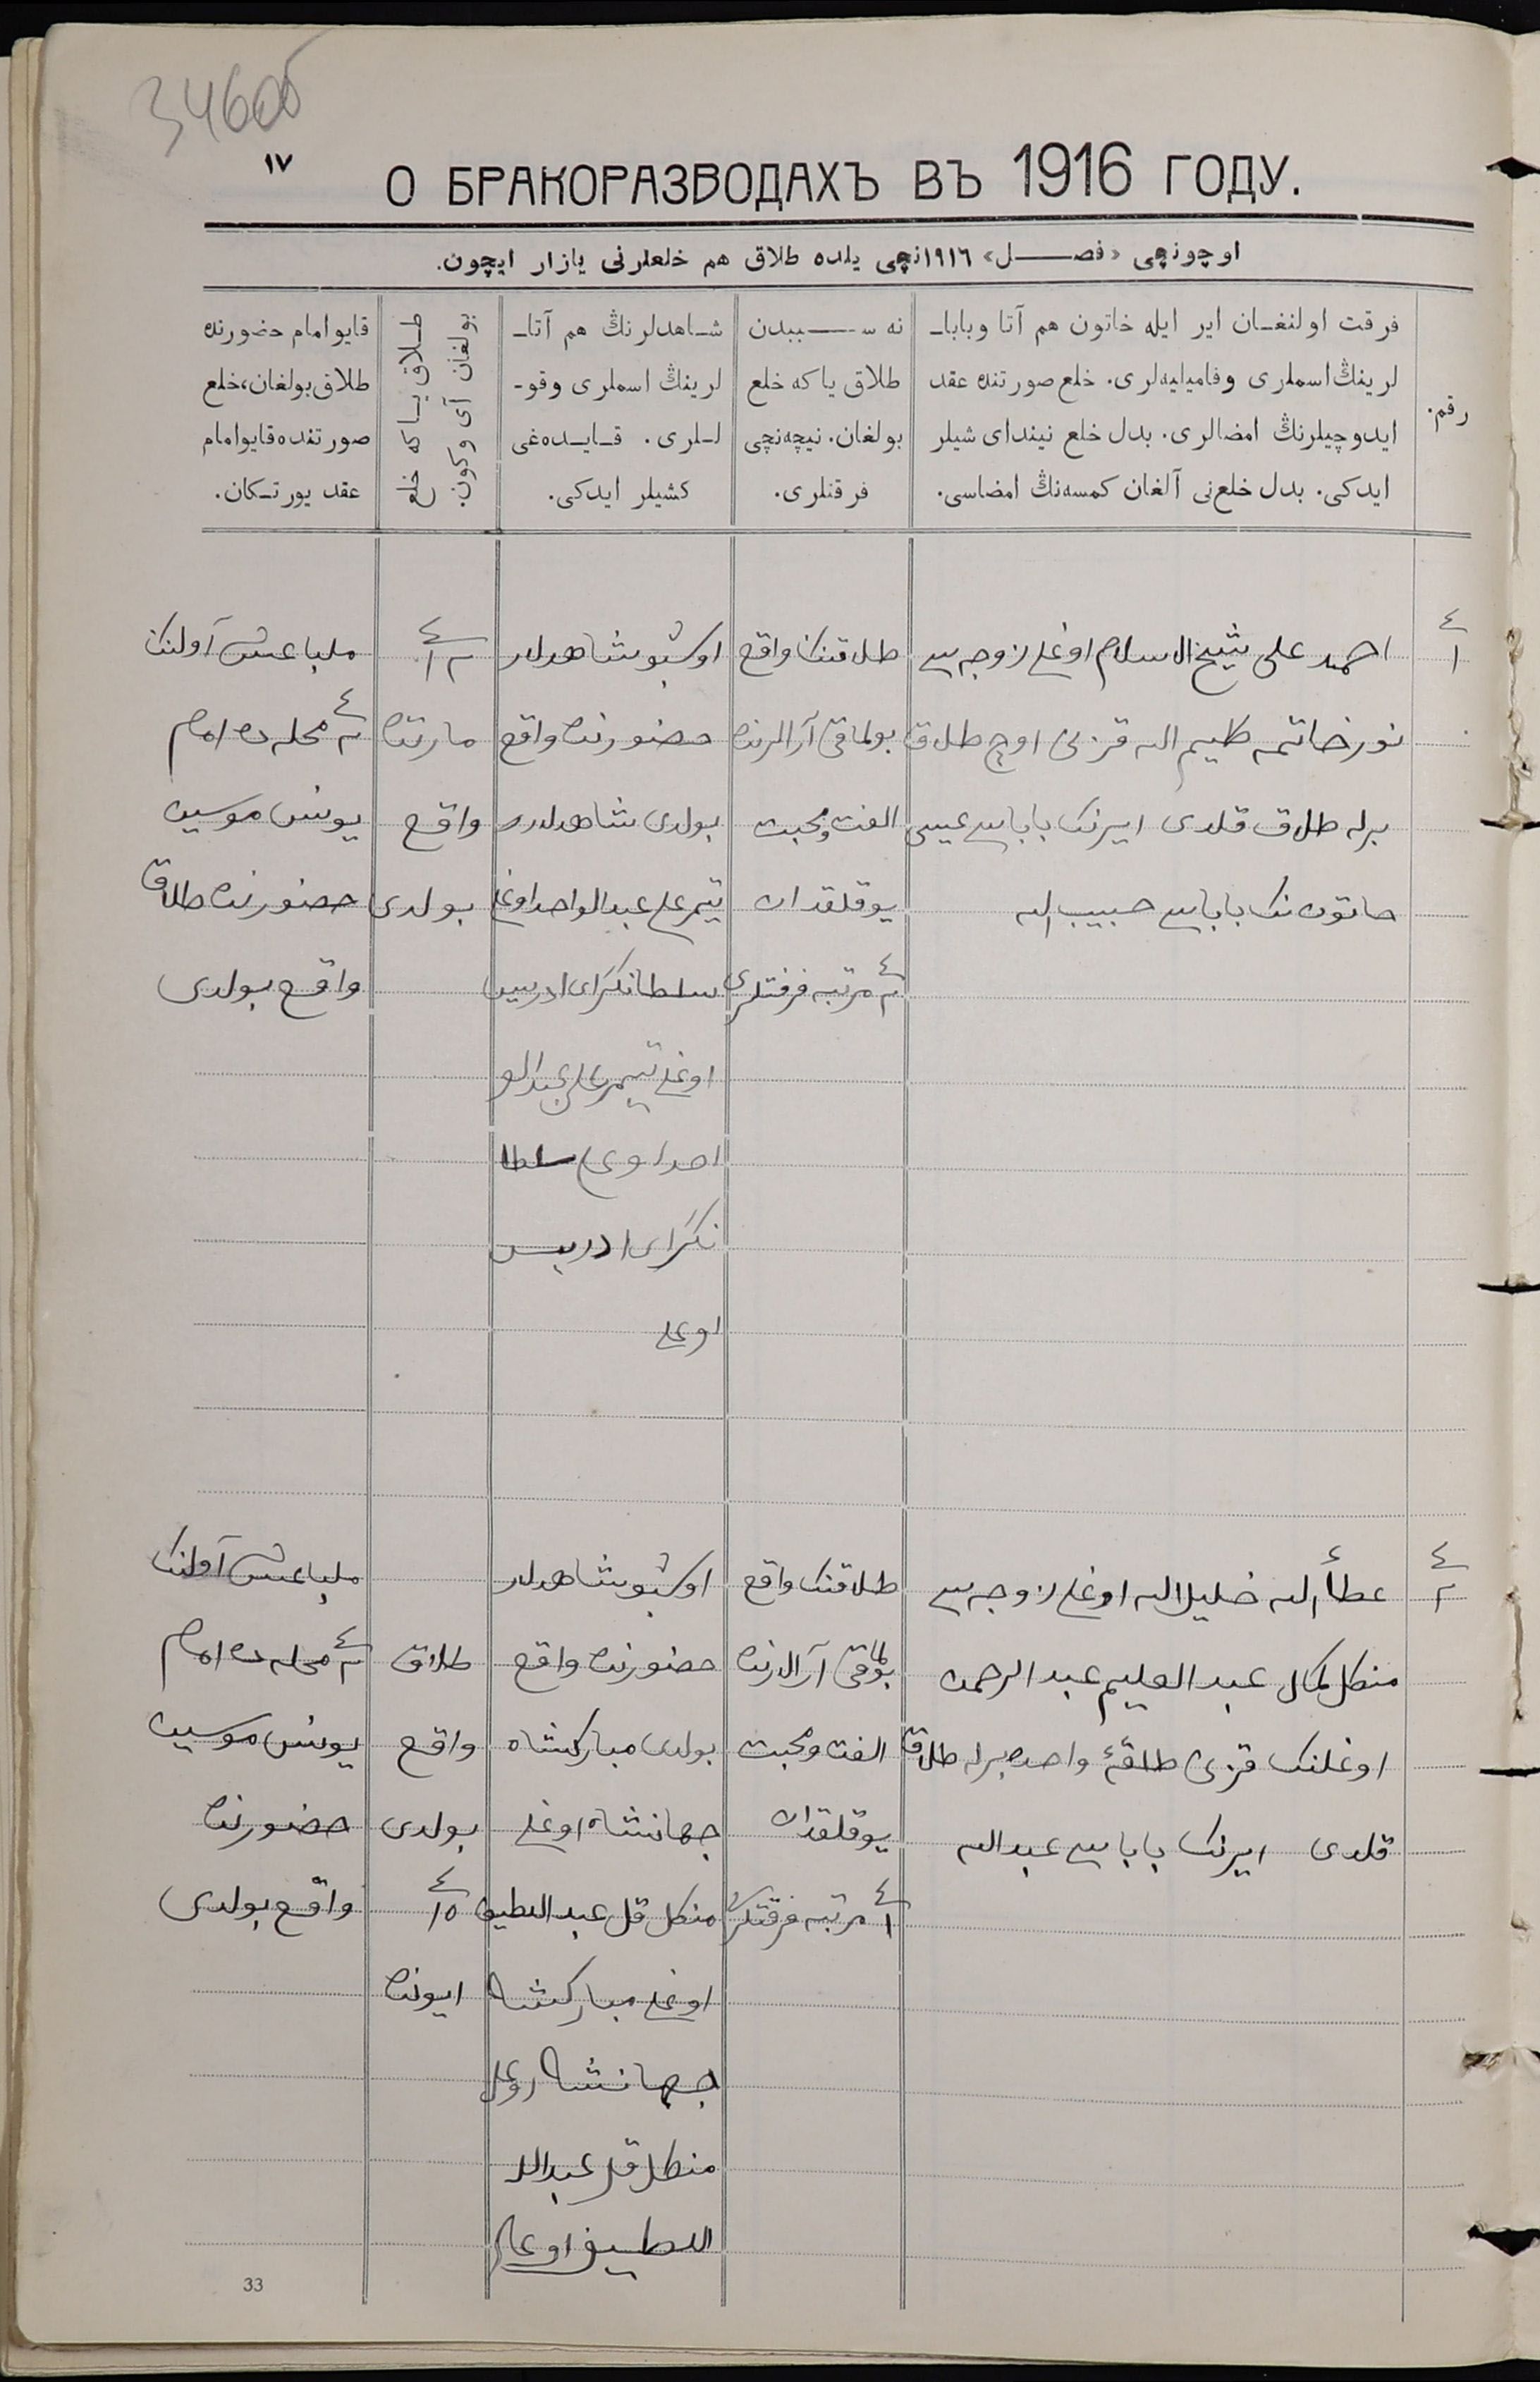 346об
١٧
О БРАКОРАЗВОДАХЪ ВЪ 1916 ГОДУ.
اوچونچی «فصـــل» ١٩١٦نچی یلده طلاق هم خلعلرنی یازار ایچون.
رقم.
فرقت اولنغـان ایر ایله خاتون هم آتا وبابا-
لرینڭ اسملری وفامیلیه‌لری. خلع صورتنده عقد
ایدوچیلرنڭ امضالری. بدل خلع نیندای شیلر
ایدکی. بدل خلع‌نی آلغان کمسه‌نڭ امضاسی.
نه ســـببدن
طلاق یا که خلع
بولغان. نیچه‌نچی
فرقتلری.
شـاهدلرنڭ هم آتا-
لرینڭ اسملری وقو-
لـلری. قـایـده‌غی
کشیلر ایدکی.
طـلاق یـا که خلع
بولغان آی وکون.
قایو امام حضورنده
طلاق بولغان، خلع
صورتنده قایو امام
عقد یورتـکان.
١
احمد علی شیخ الاسلام اوغلی زوجه سی
نورخاتمه کلیم الله قزینی اوچ طلاق
برله طلاق قلدی ایرنک باباسی عیسی
خاتون نک باباسی حبیب الله
طلاقنک واقع
بولماقی آرالرنده
الفت ومحبت
یوقلقدان
٣ مرتبه فرقتلری
اوشبو شاهدلار
حضورنده واقع
بولدی شاهدلار
تیمرعلی عبدالواحد اوغلی
سلطانکرای ادریس
اوغلی تیمرعلی عبدالو
احد اوغلی سلطا
نکرای ادریس
اوغلی
١٢
مارتده
واقع
بولدی
ملباغش آولنک
٢ محله ده امام
یونس موسین
حضورنده طلاق
واقع بولدی
٢
عطأ الله خلیل الله اوغلی زوجه سی
منکل کمال عبد العلیم عبد الرحمن
اوغلنک قزینی طلقهٔ واحده برله طلاق
قلدی ایرنک باباسی عبدالله
طلاقنک واقع
بولماقی آرالارنده
الفت ومحبت
یوقلقدان
١ مرتبه فرقتلری
اوشبو شاهدلار
حضورنده واقع
بولدی مبارکشاه
جهانشاه اوغلی
منکل قل عبد اللطیف
اوغلی مبارکشاه
جهانشاه اوغلی
منکل قل عبدالل
اللطیف اوغلی
طلاق
واقع
بولدی
١٥
ایونده
ملباغش آولنک
٢ محله ده امام
یونس موسین
حضورنده
واقع بولدی
33